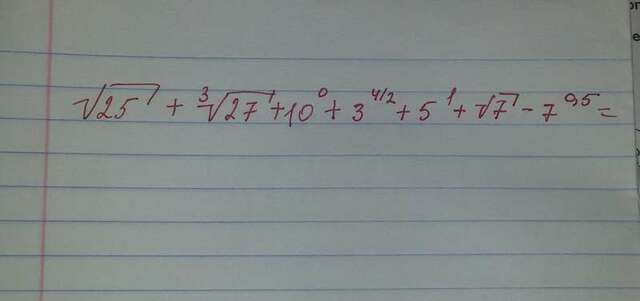 √25 + ³√27 + 10⁰ + 3^(4/2) + 5¹ + √7 - 7^0,5 =